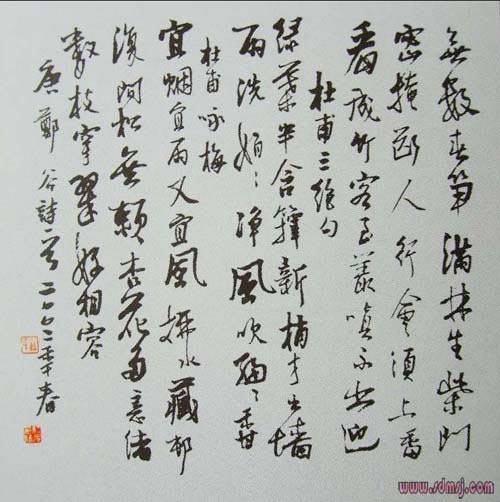 無數春笋滿林生柴門
密掩斷人行會須上番
看成竹客至叢嗔不出迎
杜甫三绝句
緑葉半含籜新梢才出墙
雨洗娟娟凈風吹細細香
杜甫咏梅
宜烟宜雨又宜風拂水藏邨
復間松無賴杏花多意緒
數枝穿翠好相容
唐鄭谷詩一首二〇〇二年春
www.sdmsj.com